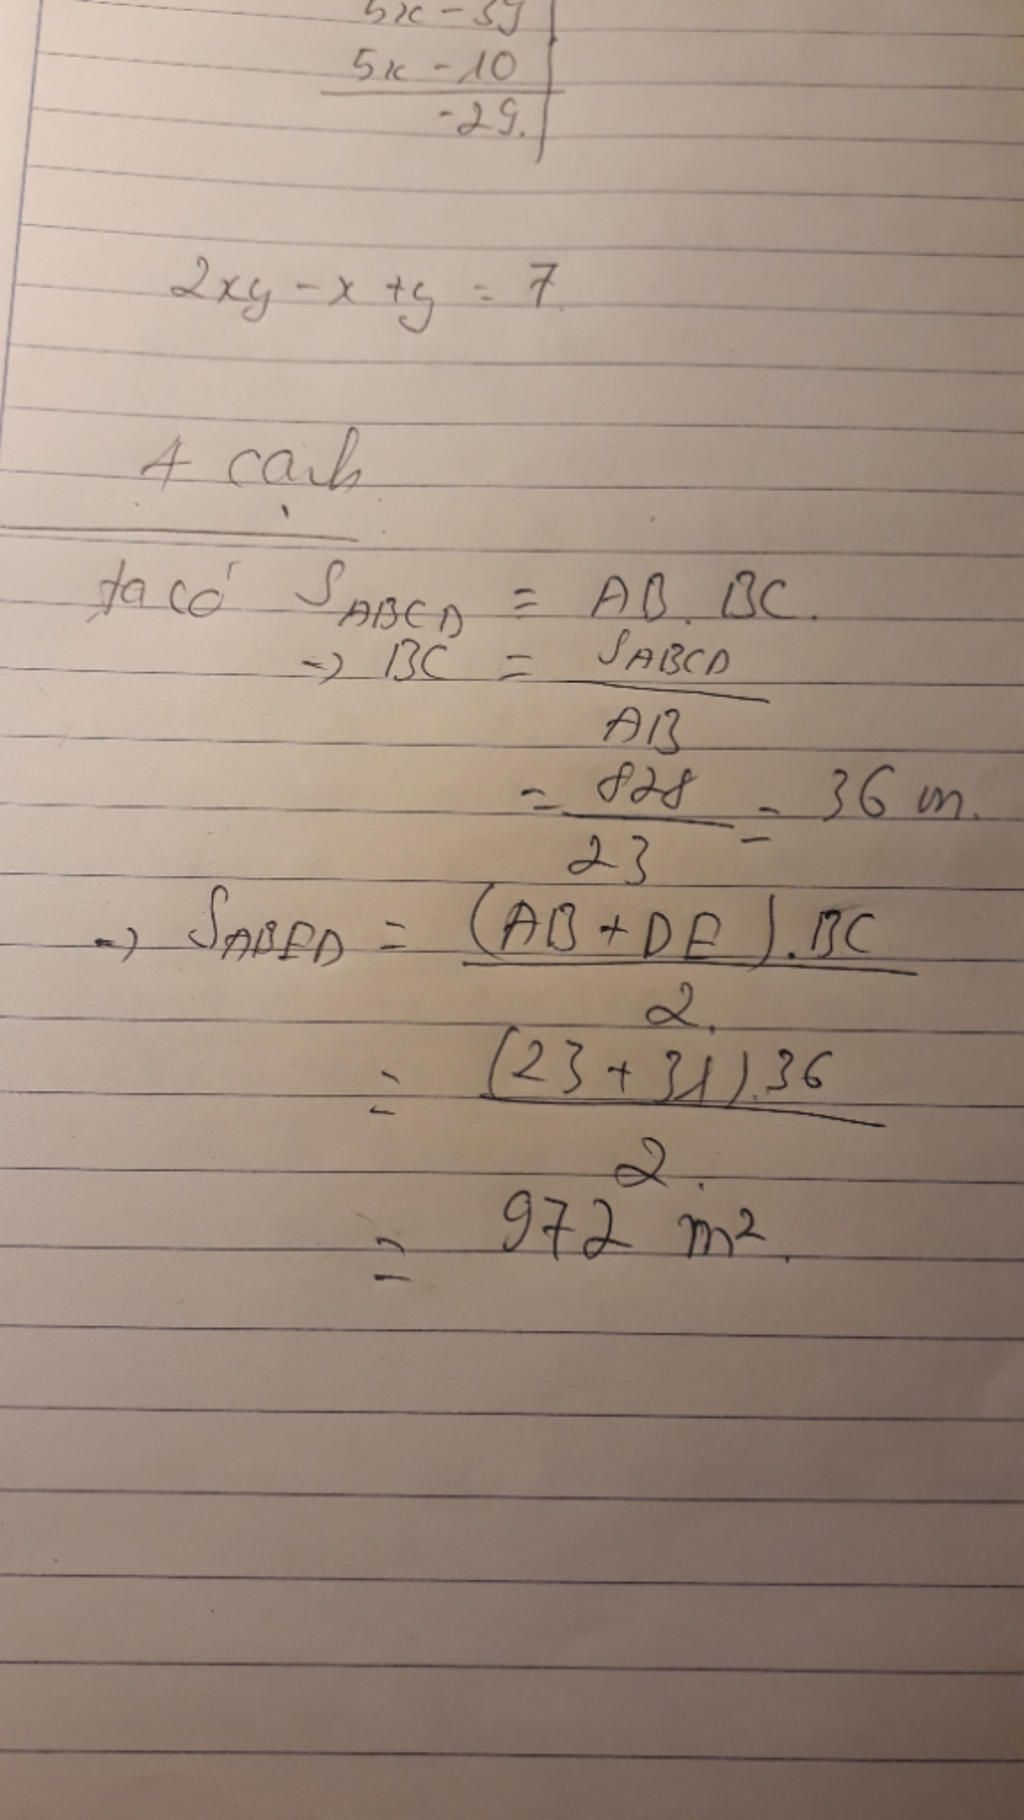 5x - 39
5x - 10
-29.
2xy - x + y = 7.
4 cạnh
ta có S ABCD = AB. BC.
→ BC = S ABCD
AB
= 828 = 36 m.
23
→ S ABED = (AB + DE). BC
2.
= (23 + 31). 36
2.
= 972 m².